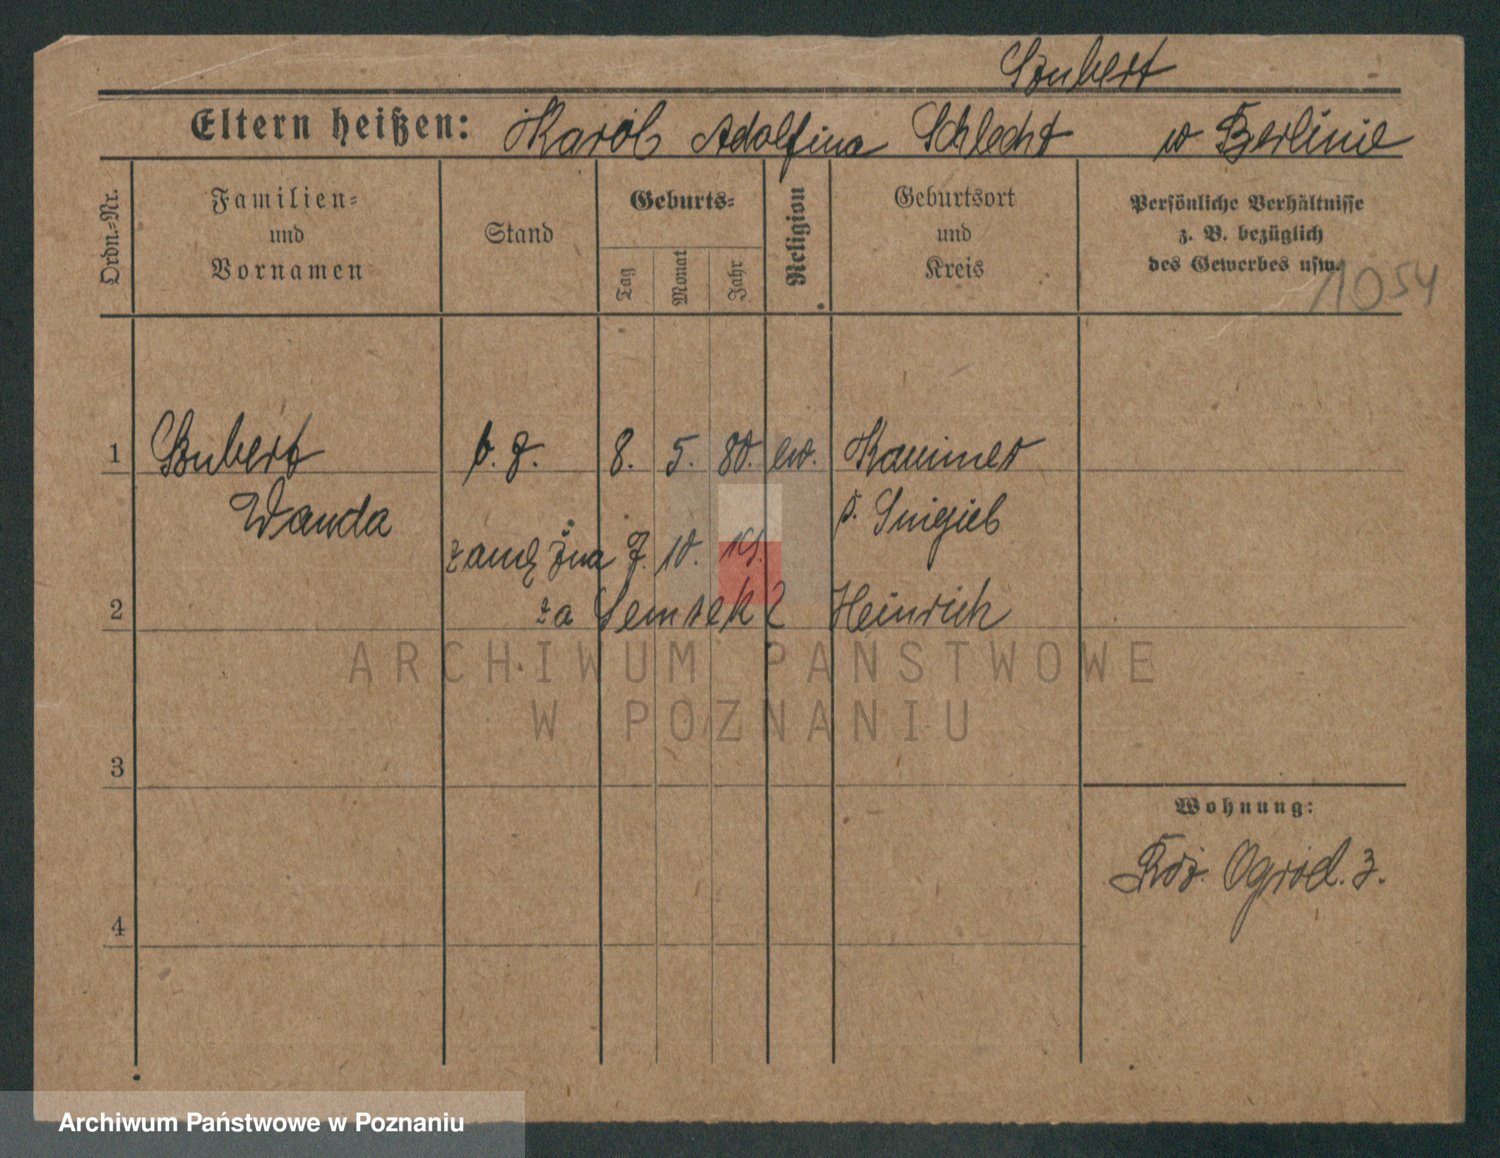 Szubert
Eltern heißen: Karol Adolfina Schlecht w Berlinie
Ordn.-Nr.
Familien-
und
Vornamen
Stand
Geburts-
Tag
Monat
Jahr
Religion
Geburtsort
und
Kreis
Persönliche Verhältnisse
z. B. bezüglich
des Gewerbes usw.
1054
1 Szubert 8. 5. 80. ew. Kammer
Wanda p. Smigiel
zamężna 7. 10. 19.
2 za Heinrich
ARCHIWUM PAŃSTWOWE
W POZNANIU
3
Wohnung:
Ogrod. 3.
4
Archiwum Państwowe w Poznaniu